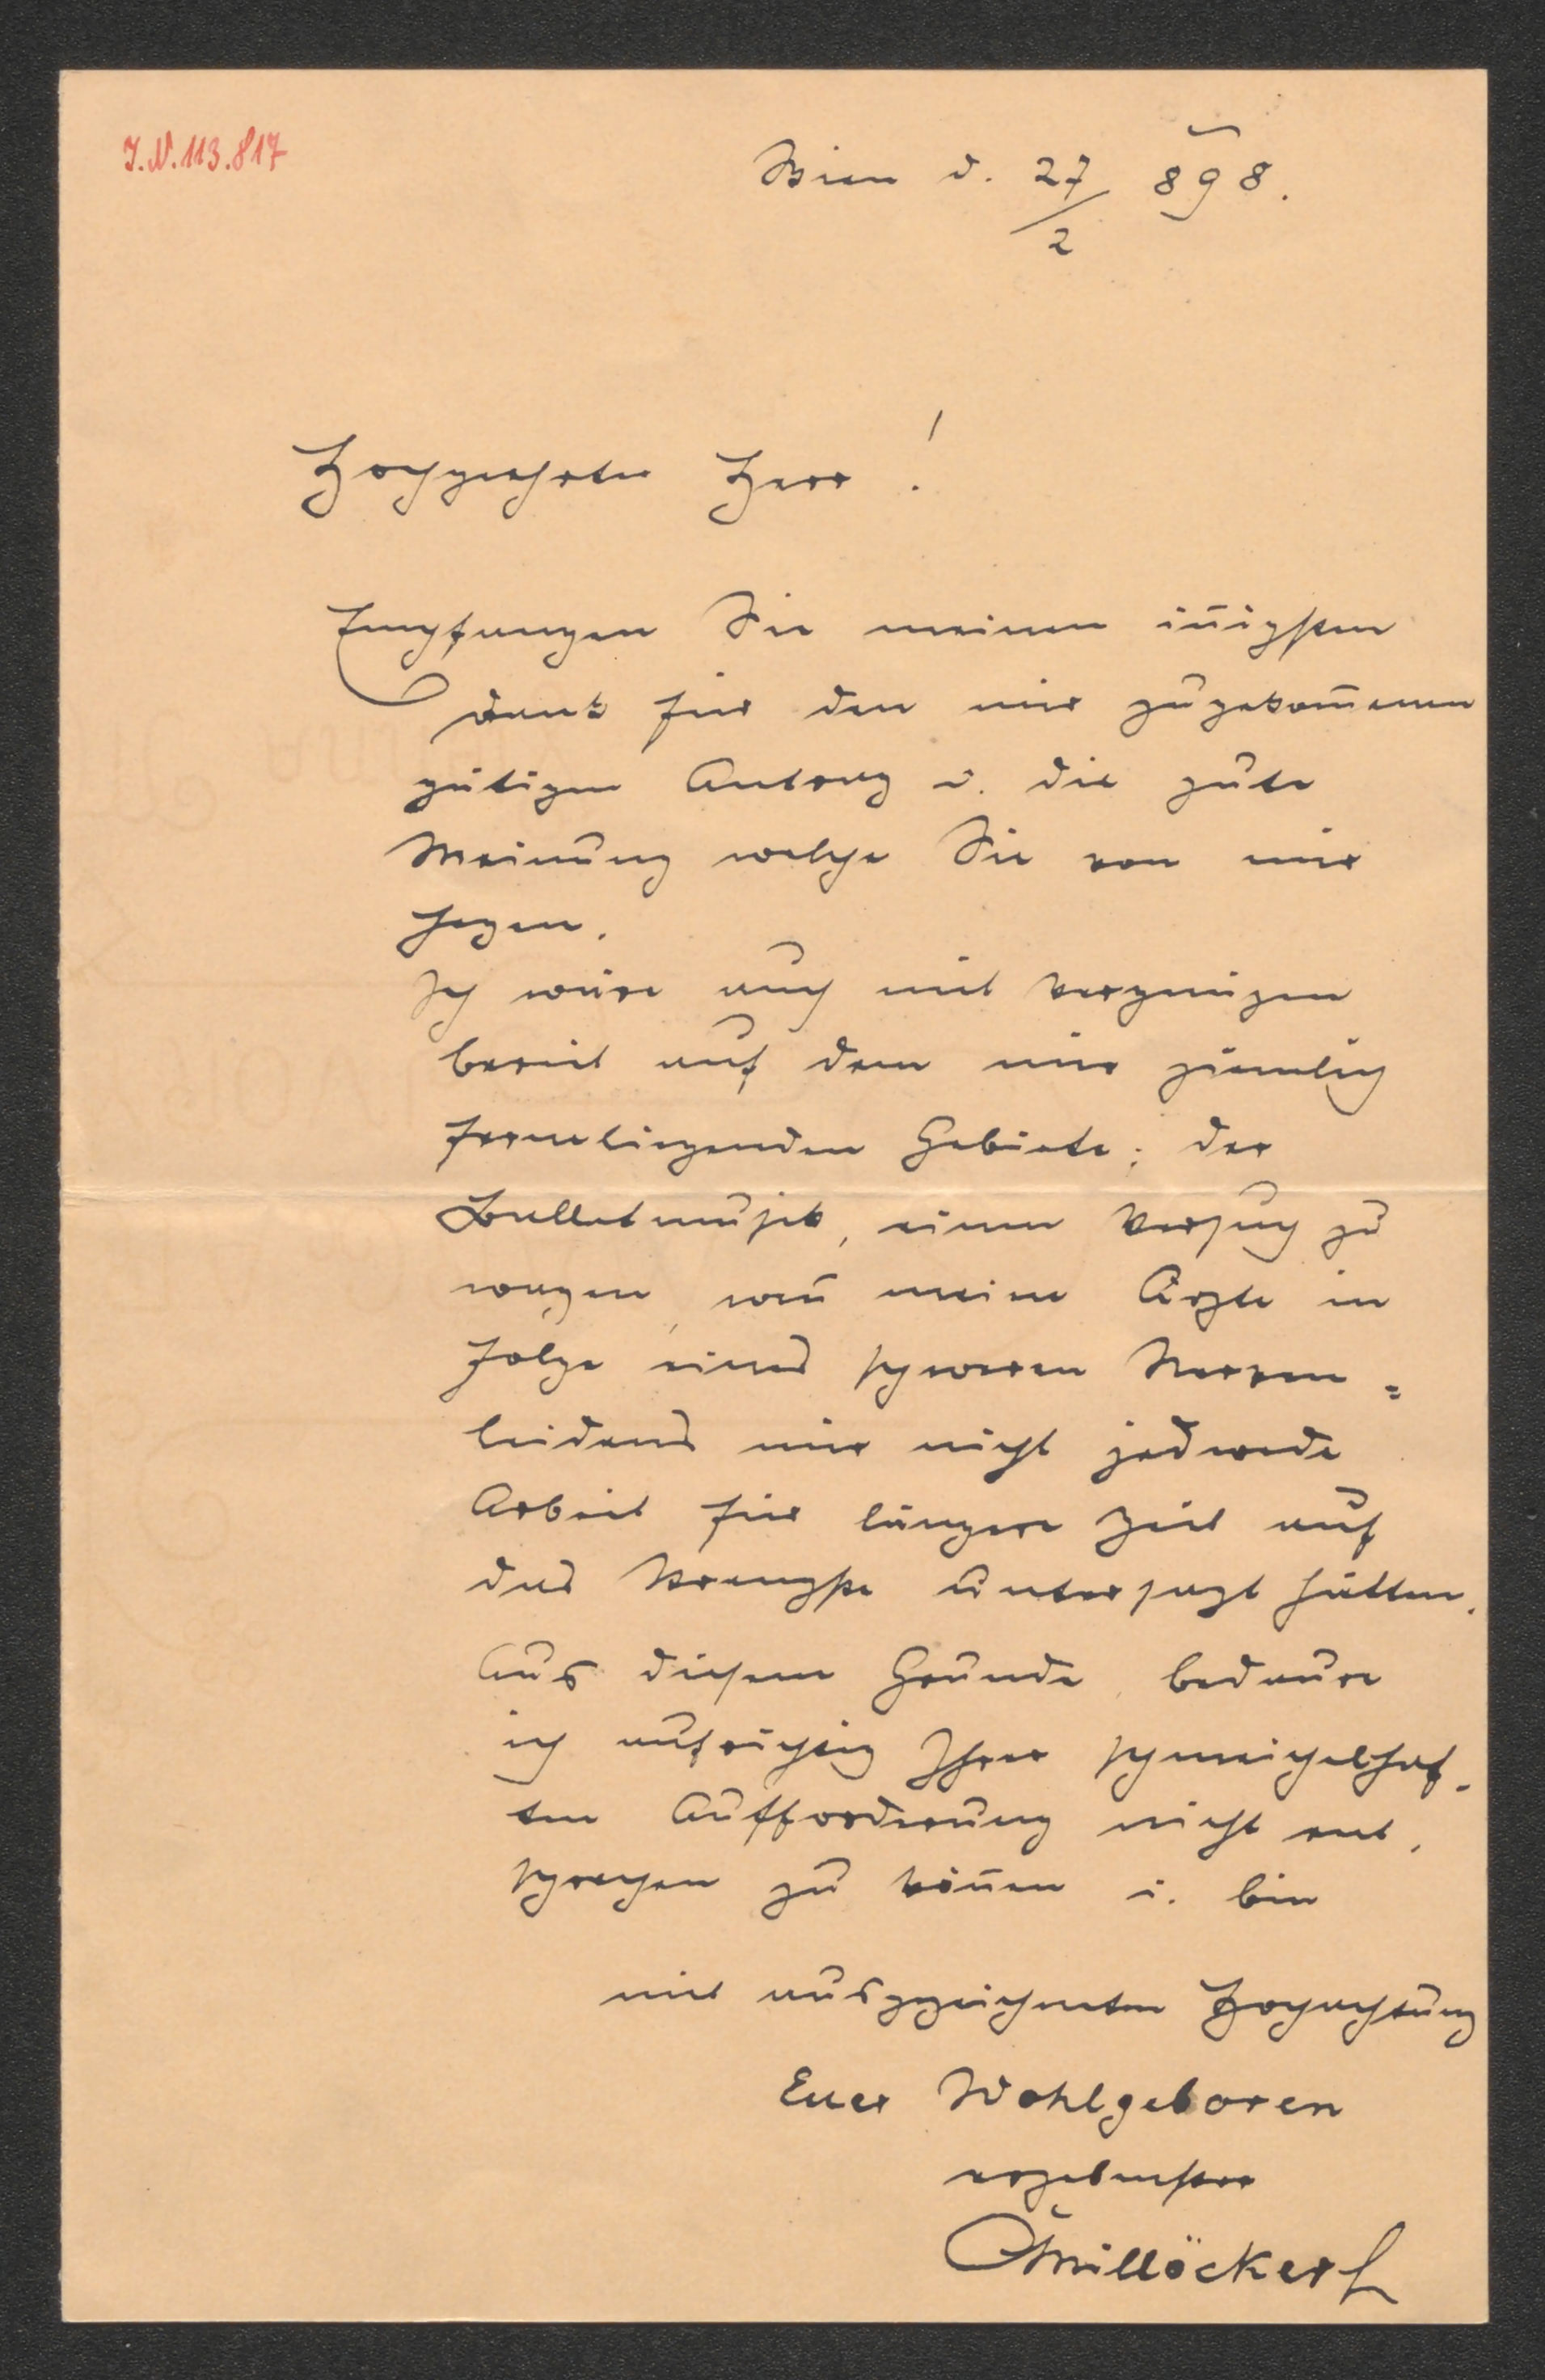 J.N. 113.817
Wien d. 27/2 898.
Hochgeehrter Herr!
Empfangen Sie meinen iñigsten
Dank für den mir zugekom̅enen
gütigen Antrag u. die gute
Meinung welche Sie von mir
hegen.
Ich wäre auch mit Vergnügen
bereit auf dem mir ziemlich
ferneliegenden Gebiete; der
Balletmusik, einen Versuch zu
wagen, weñ meine Ärzte in
Folge eines schweren Nerven=
leidens mir nicht jedwede
Arbeit für längere Zeit auf
das Strengste untersagt hätten.
Aus diesem Grunde, bedaure
ich aufrichtig Ihrer schmeichelhaf-
ten Aufforderung nicht ent-
sprechen zu köñen u. bin
mit ausgezeichneten Hochachtung
Euer Wohlgeboren
ergebenster
CMillöcker